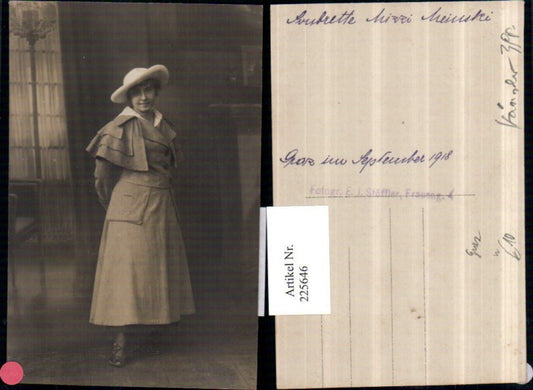 Soubrette Mizzi Meinski
Graz im September 1918
Fotogr. E. J. Stöffler, Fraueng. 4
Artikel Nr.
225646
Graz